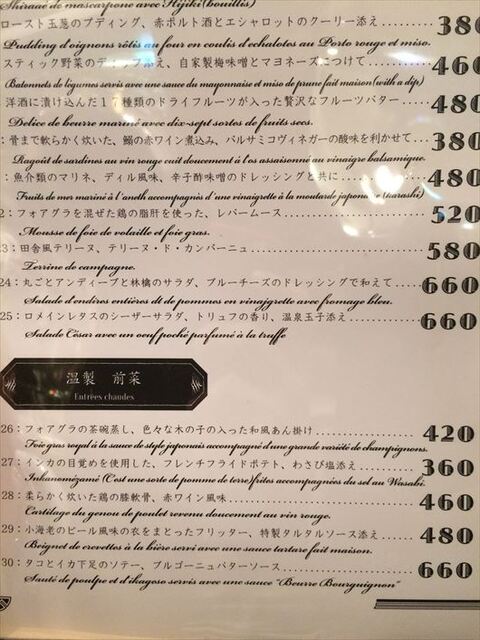 Shiraae de mascarpone avec Hijiki(bouillis)
ロースト玉葱のプディング、赤ポルト酒とエシャロットのクーリー添え 380
Pudding d'oignons rôtis au four en coulis d'echalotes au Porto rouge et miso.
スティック野菜のディップ添え、自家製梅味噌とマヨネーズにつけて 460
Batonnets de légumes servis avec une sauce du mayonnaise et miso de prune fait maison(with a dip)
洋酒に漬け込んだ17種類のドライフルーツが入った贅沢なフルーツバター 480
Delice de beurre mariné avec dix-sept sortes de fruits secs.
：骨まで軟らかく炊いた、鰯の赤ワイン煮込み、バルサミコヴィネガーの酸味を利かせて 380
Ragoût de sardines au vin rouge cuit doucement à l'os assaisonné au vinaigre balsamique.
：魚介類のマリネ、ディル風味、辛子酢味噌のドレッシングと共に 480
Fruits de mer mariné à l'aneth accompagnés d'une vinaigrette à la moutarde japonaise (karashi)
2：フォアグラを混ぜた鶏の脂肝を使った、レバームース 520
Mousse de foie de volaille et foie gras.
3：田舎風テリーヌ、テリーヌ・ド・カンパーニュ 580
Terrine de campagne.
24：丸ごとアンディーブと林檎のサラダ、ブルーチーズのドレッシングで和えて 660
Salade d'endires entières dt de pommes en vinajgrette avec fromage bleu.
25：ロメインレタスのシーザーサラダ、トリュフの香り、温泉玉子添え 660
Salade César avec un oeuf poché parfumé à la truffe
温製 前菜
Entrées chaudes
26：フォアグラの茶碗蒸し、色々な木の子の入った和風あん掛け 420
Foie gras royal à la sauce de style japonais accompagné d'une grande variété de champignons.
27：インカの目覚めを使用した、フレンチフライドポテト、わさび塩添え 360
Inkanomézamé (C'est une sorte de pomme de terre)frites accompagnées du sel au Wasabi.
28：柔らかく炊いた鶏の膝軟骨、赤ワイン風味 460
Cartilage du genou de poulet revenu doucement au vin rouge.
29：小海老のビール風味の衣をまとったフリッター、特製タルタルソース添え 480
Beignet de crevettes à la bière servi avec une sauce tartare fait maison.
30：タコとイカ下足のソテー、ブルゴーニュバターソース 660
Sauté de poulpe et d'ikageso servis avec une sauce "Beurre Bourguignon"